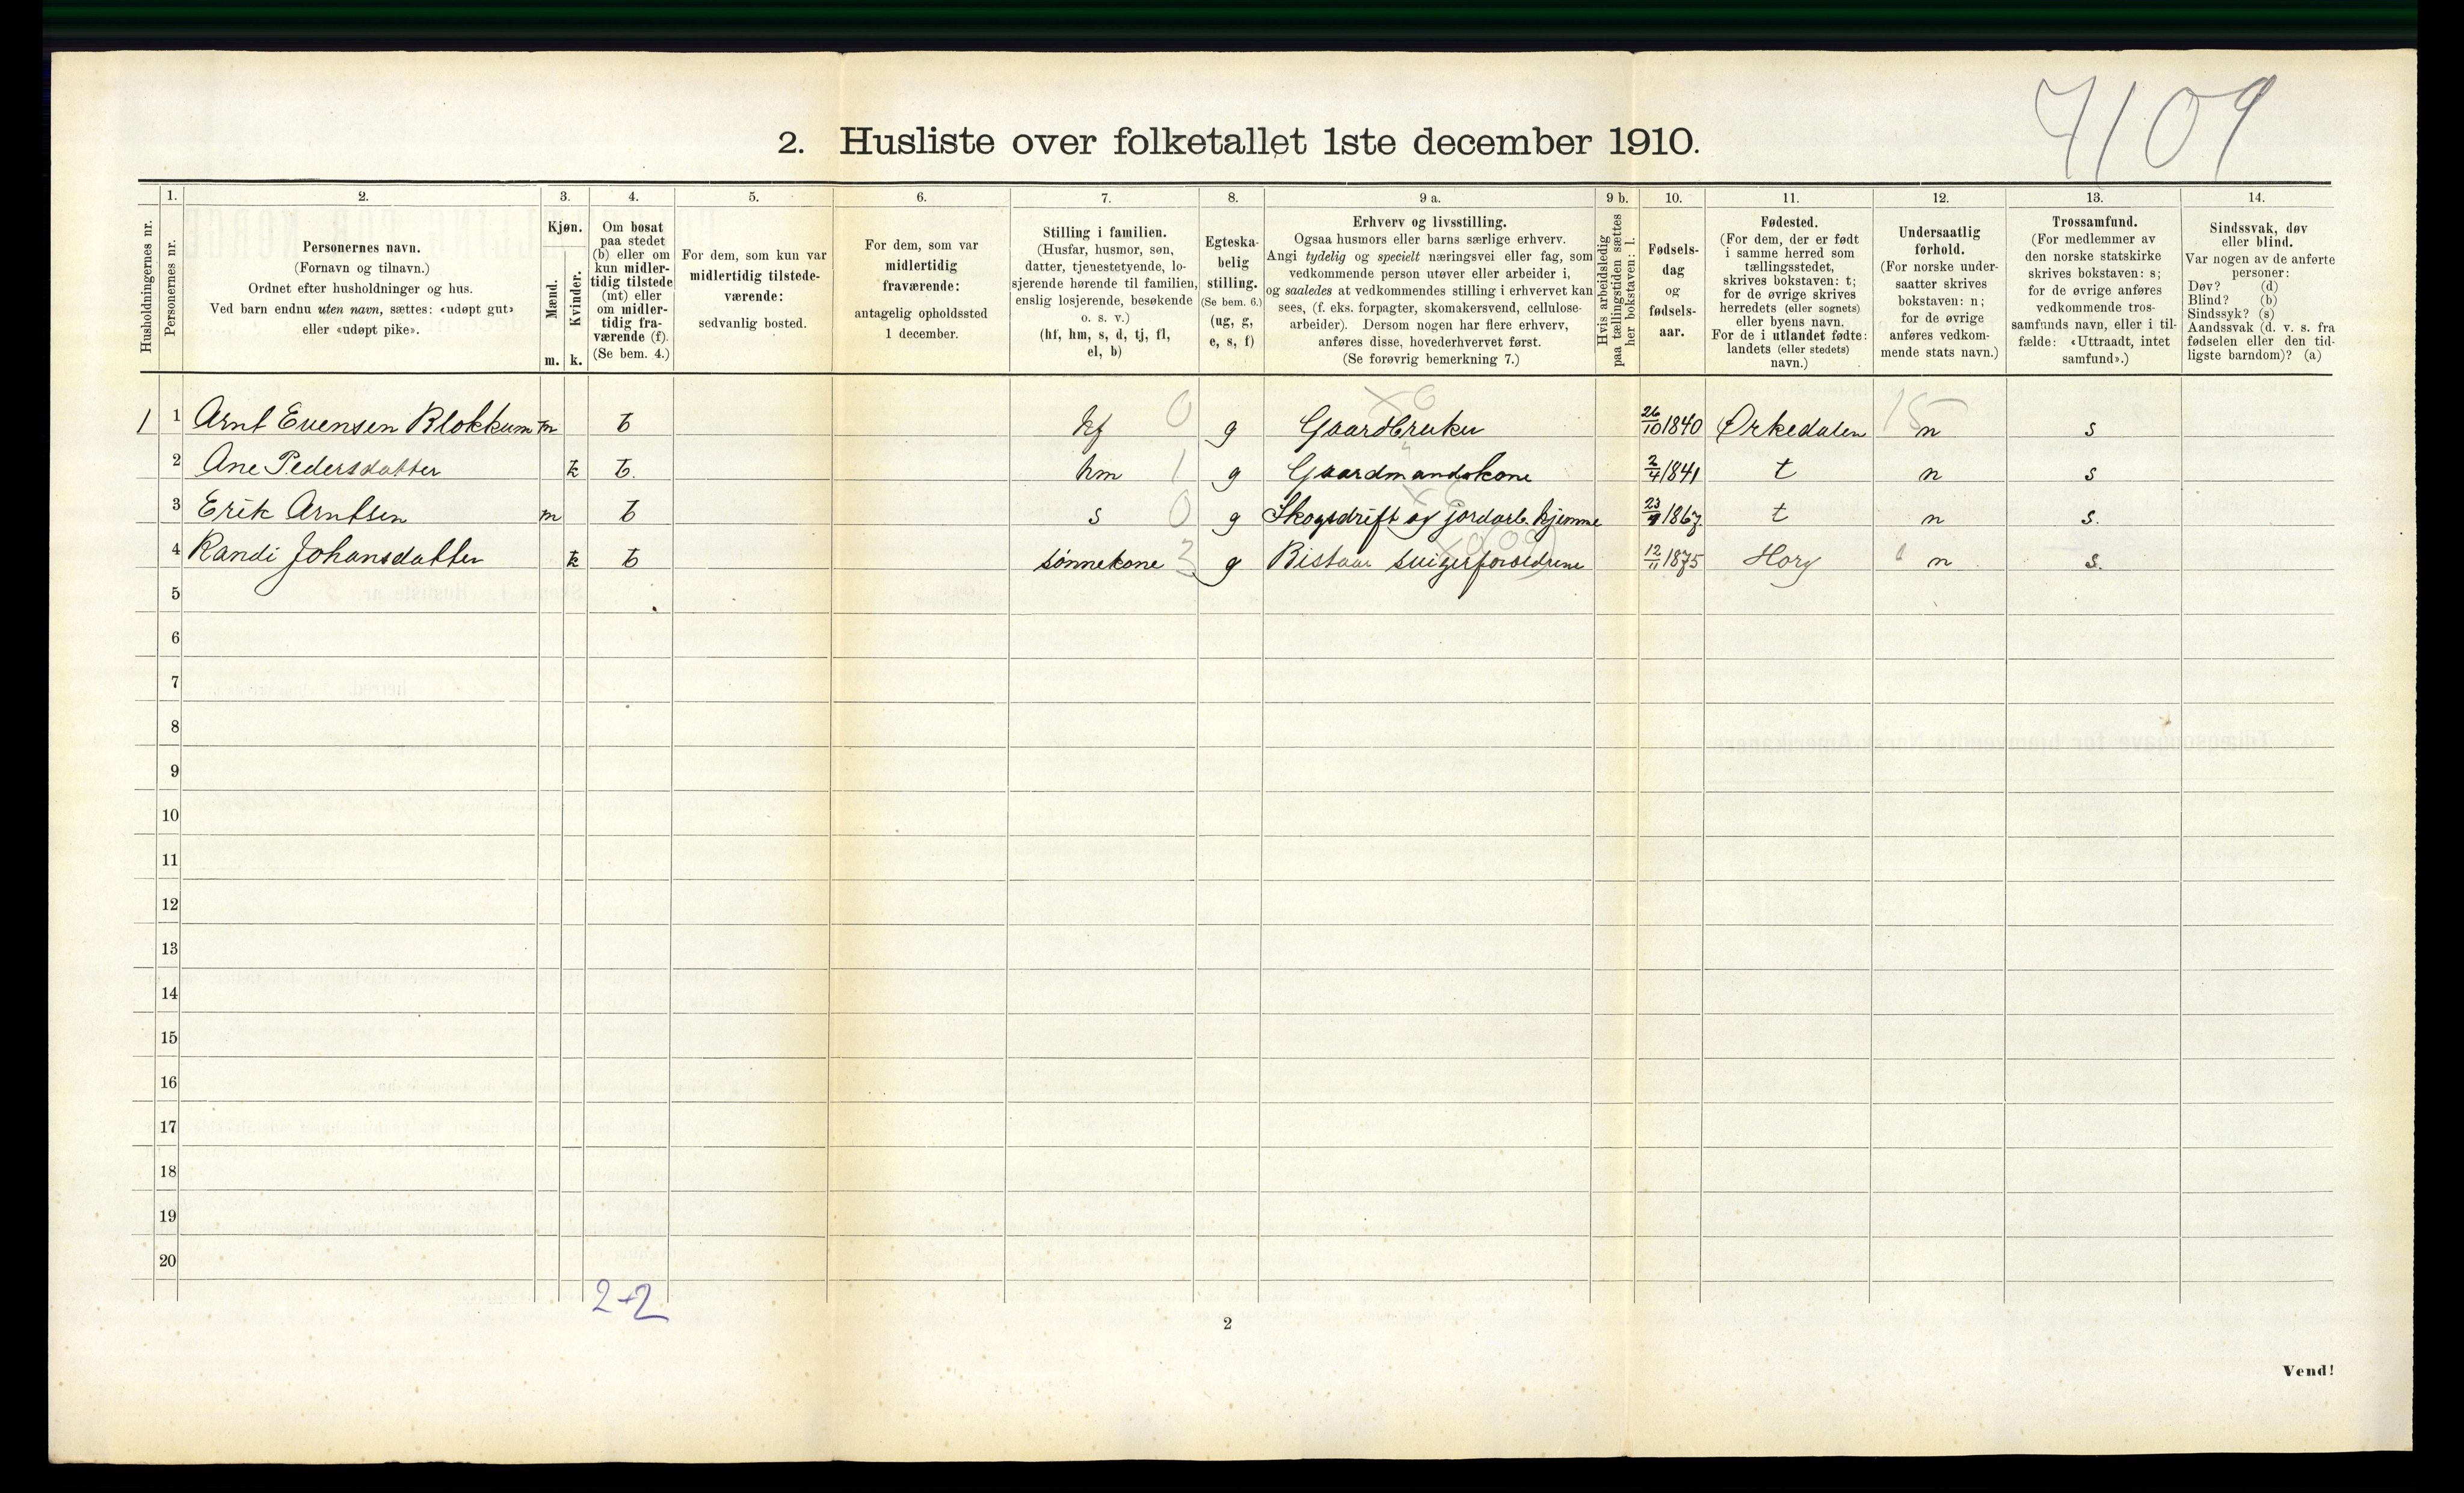 7109
2. Husliste over folketallet 1ste december 1910.
Husholdningernes nr.
1.
Personernes nr.
2.
Personernes navn.
(Fornavn og tilnavn.)
Ordnet efter husholdninger og hus.
Ved barn endnu uten navn, sættes: «udøpt gut»
eller «udøpt pike».
3.
Kjøn.
Mænd.
m.
Kvinder.
k.
4.
Om bosat
paa stedet
(b) eller om
kun midler-
tidig tilstede
(mt) eller
om midler-
tidig fra-
værende (f).
(Se bem. 4.)
5.
For dem, som kun var
midlertidig tilstede-
værende:
sedvanlig bosted.
6.
For dem, som var
midlertidig
fraværende:
antagelig opholdssted
1 december.
7.
Stilling i familien.
(Husfar, husmor, søn,
datter, tjenestetyende, lo-
sjerende hørende til familien,
enslig losjerende, besøkende
o. s. v.)
(hf, hm, s, d, tj, fl,
el, b)
8.
Egteska-
belig
stilling.
(Se bem. 6.)
(ug, g,
e, s, f)
9 a.
Erhverv og livsstilling.
Ogsaa husmors eller barns særlige erhverv.
Angi tydelig og specielt næringsvei eller fag, som
vedkommende person utøver eller arbeider i,
og saaledes at vedkommendes stilling i erhvervet kan
sees, (f. eks. forpagter, skomakersvend, cellulose-
arbeider). Dersom nogen har flere erhverv,
anføres disse, hovederhvervet først.
(Se forøvrig bemerkning 7.)
9 b.
Hvis arbeidsledig
paa tællingstiden sættes
her bokstaven: l.
10.
Fødsels-
dag
og
fødsels-
aar.
11.
Fødested.
(For dem, der er født
i samme herred som
tællingsstedet,
skrives bokstaven: t;
for de øvrige skrives
herredets (eller sognets)
eller byens navn.
For de i utlandet fødte:
landets (eller stedets)
navn.)
12.
Undersaatlig
forhold.
(For norske under-
saatter skrives
bokstaven: n;
for de øvrige
anføres vedkom-
mende stats navn.)
13.
Trossamfund.
(For medlemmer av
den norske statskirke
skrives bokstaven: s;
for de øvrige anføres
vedkommende tros-
samfunds navn, eller i til-
fælde: «Uttraadt, intet
samfund».)
14.
Sindssvak, døv
eller blind.
Var nogen av de anførte
personer:
Døv? (d)
Blind? (b)
Sindssyk? (s)
Aandssvak (d. v. s. fra
fødselen eller den tid-
ligste barndom)? (a)
1 1 Arnt Evensen Blokkum m b hf 0 g Gaardbruker 26/10 1840 Ørkedalen 15 n s
2 Ane Pedersdatter k b. hm 1 g Gaardmandskone 2/4 1841 t n s
3 Erik Arntsen m b s 0 g Skogsdrift og jordarb. hjemme 1867 t n s.
4 Randi Johansdatter k b sønnekone 3 g Bistaar svigerforældrene 12/11 1875 Horg n s.
5
6
7
8
9
10
11
12
13
14
15
16
17
18
19
20
2-2
2
Vend!